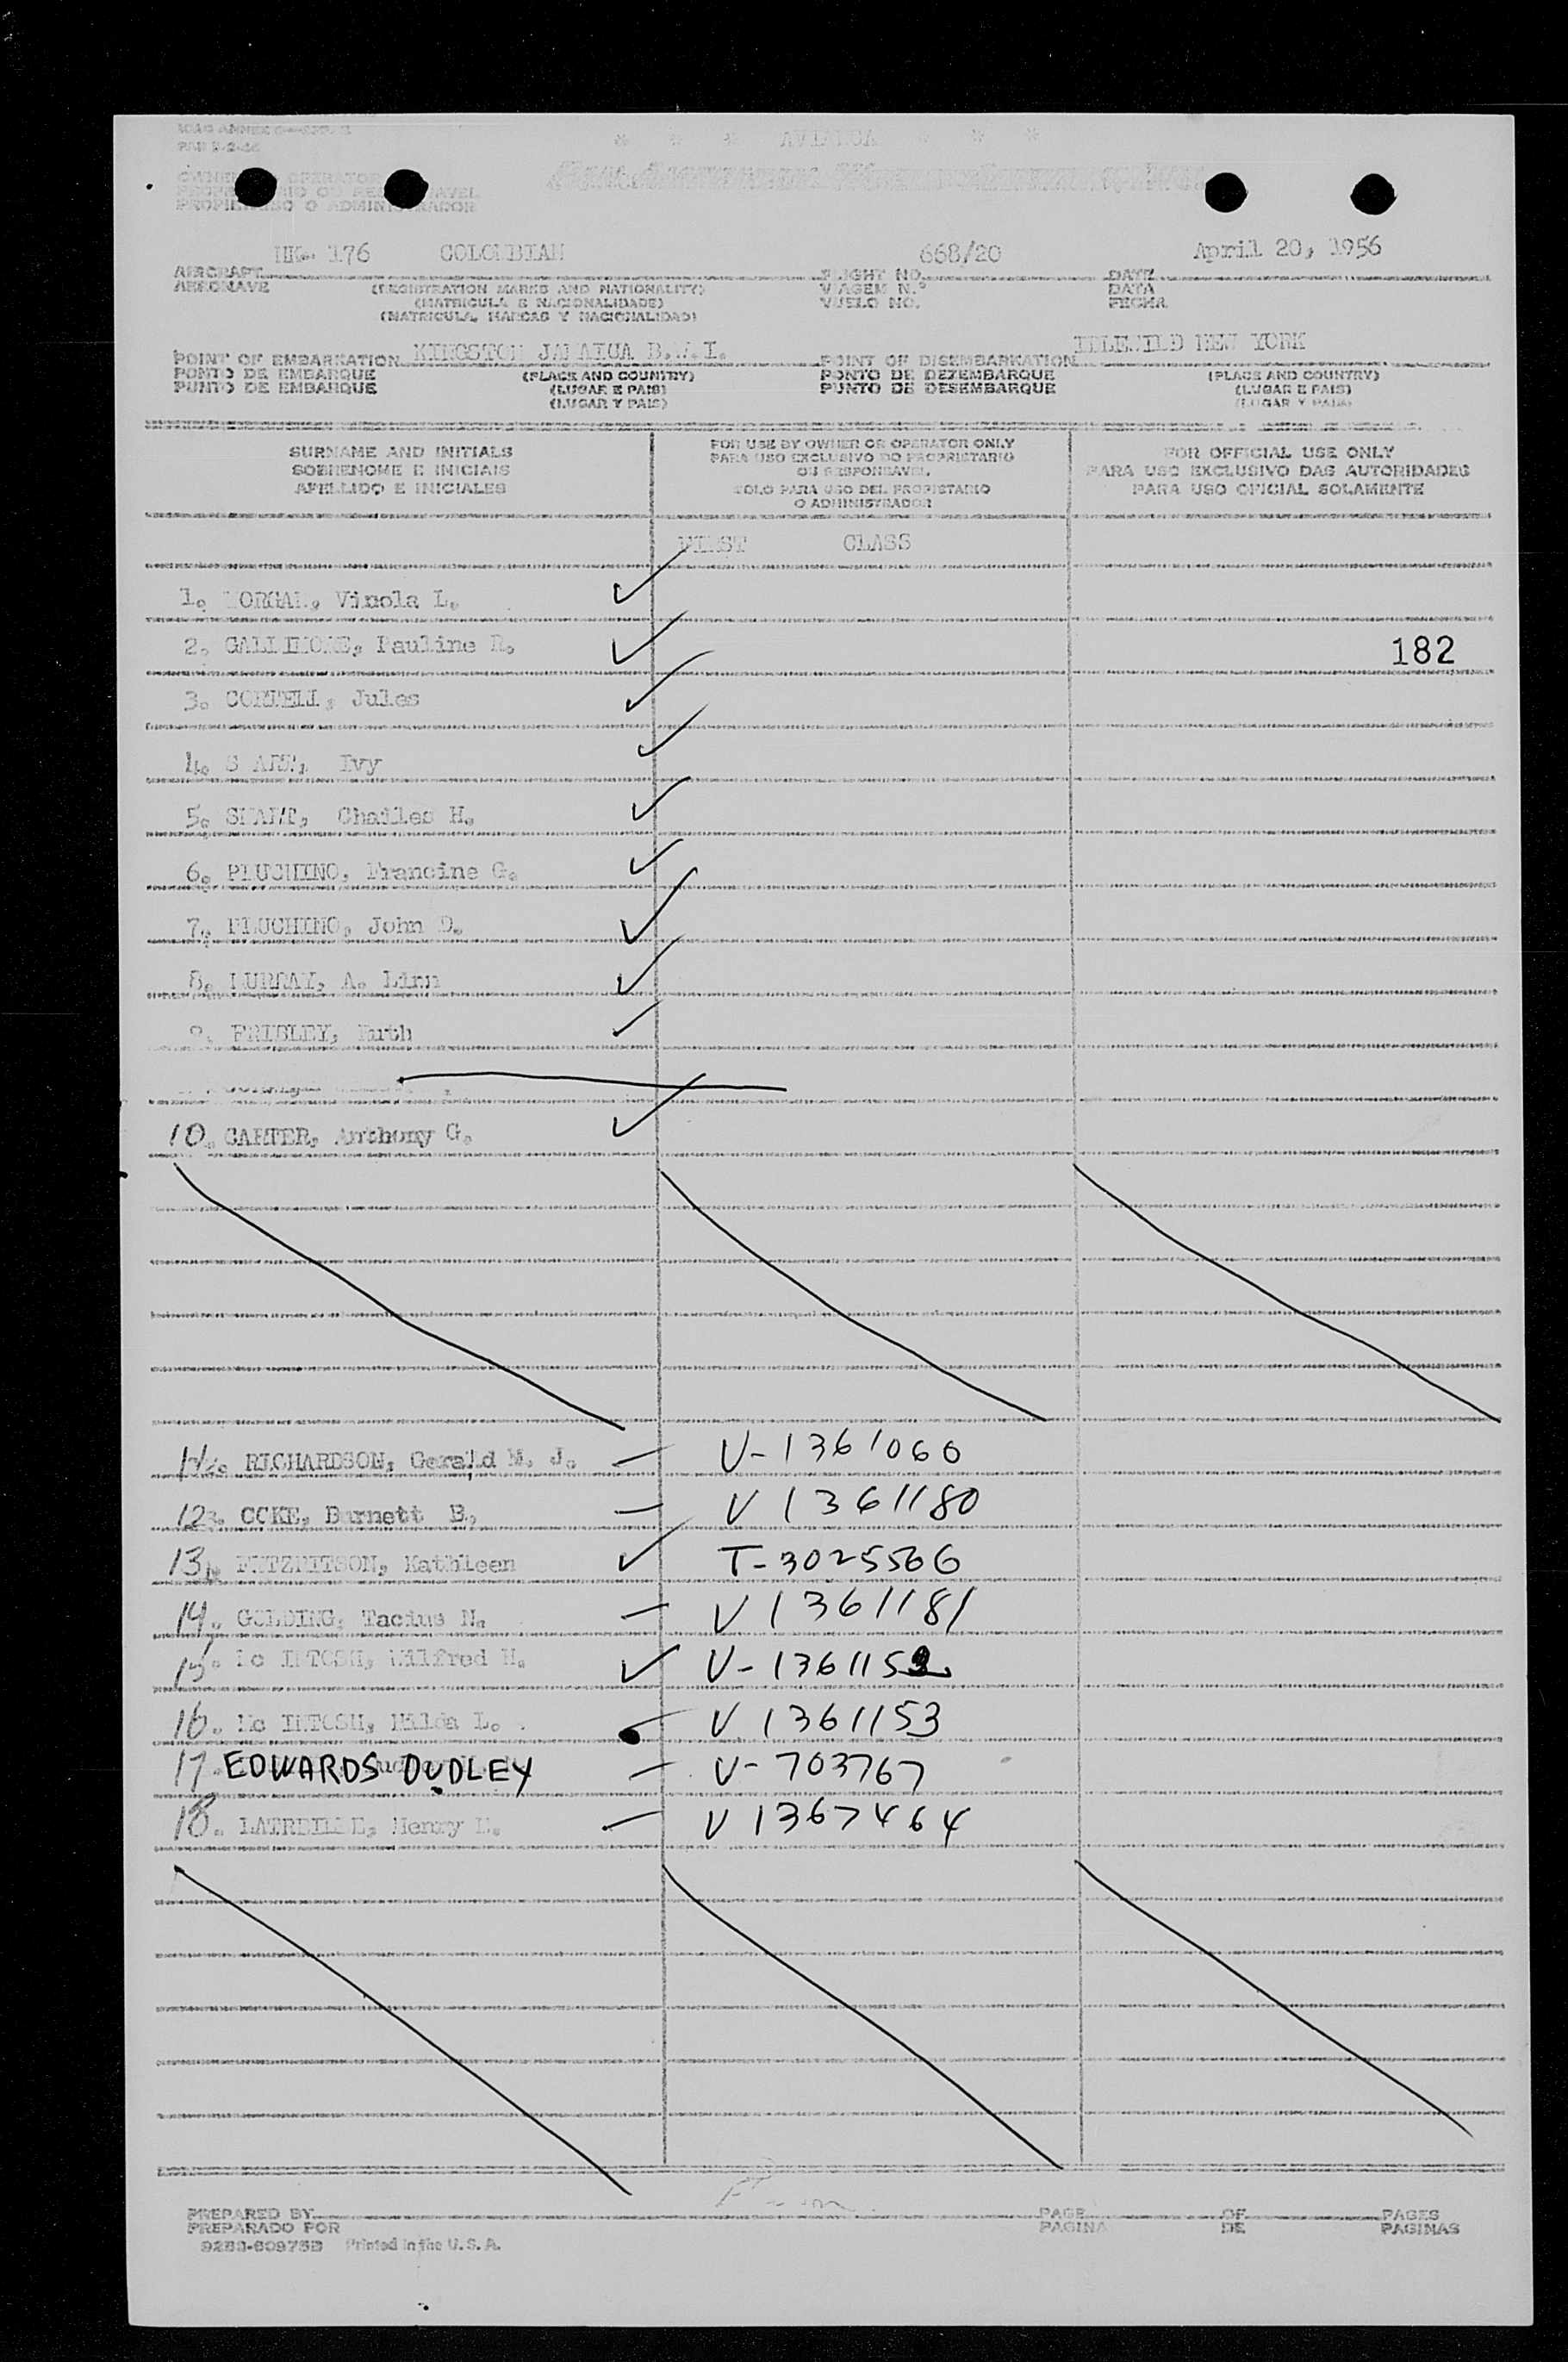 * * * AVIANCA * *
HK- 176 COLOMBIAN 668/20 April 20, 1956
AIRCRAFT FLIGHT NO. DATE
AERONAVE (REGISTRATION MARKS AND NATIONALITY) VIAGEM N.º DATA
(MATRICULA E NACIONALIDADE) VUELO NO. FECHA
(MATRICULA, MARCAS Y NACIONALIDAD)
KINGSTON JAMAICA B.W.I. IDLEWILD NEW YORK
POINT OF EMBARKATION POINT OF DISEMBARKATION
PONTO DE EMBARQUE (PLACE AND COUNTRY) PONTO DE DEZEMBARQUE (PLACE AND COUNTRY)
PUNTO DE EMBARQUE (LUGAR E PAIS) PUNTO DE DESEMBARQUE (LUGAR E PAIS)
(LUGAR Y PAIS) (LUGAR Y PAIS)
SURNAME AND INITIALS
SOBRENOME E INICIAIS
APELLIDO E INICIALES
FOR USE BY OWNER OR OPERATOR ONLY
PARA USO EXCLUSIVO DO PROPRIETARIO
OU RESPONSAVEL
SOLO PARA USO DEL PROPIETARIO
O ADMINISTRADOR
FOR OFFICIAL USE ONLY
PARA USO EXCLUSIVO DAS AUTORIDADES
PARA USO OFICIAL SOLAMENTE
FIRST CLASS
1. Vinola L.
2. GALLIMORE, Pauline R. 182
3. Jules
4. Ivy
5. Charles H.
6. PLUCHINO, Francine G.
7. PLUCHINO, John D.
8. MURRAY, A. Linn
9. Ruth
10. CARTER, Anthony G.
11. RICHARDSON, Gerald M. J. V-1361060
12. COKE, Burnett B. V 1361180
13. Kathleen T-3025566
14. GOLDING, Tacius N. V 1361181
15. Mc INTOSH, Wilfred H. V-1361152
16. Mc INTOSH, Hilda L. V 1361153
17. EDWARDS DUDLEY V-703767
18. Henry V 1367464
PREPARED BY PAGE OF PAGES
PREPARADO POR PAGINA DE PAGINAS
Printed in the U.S.A.